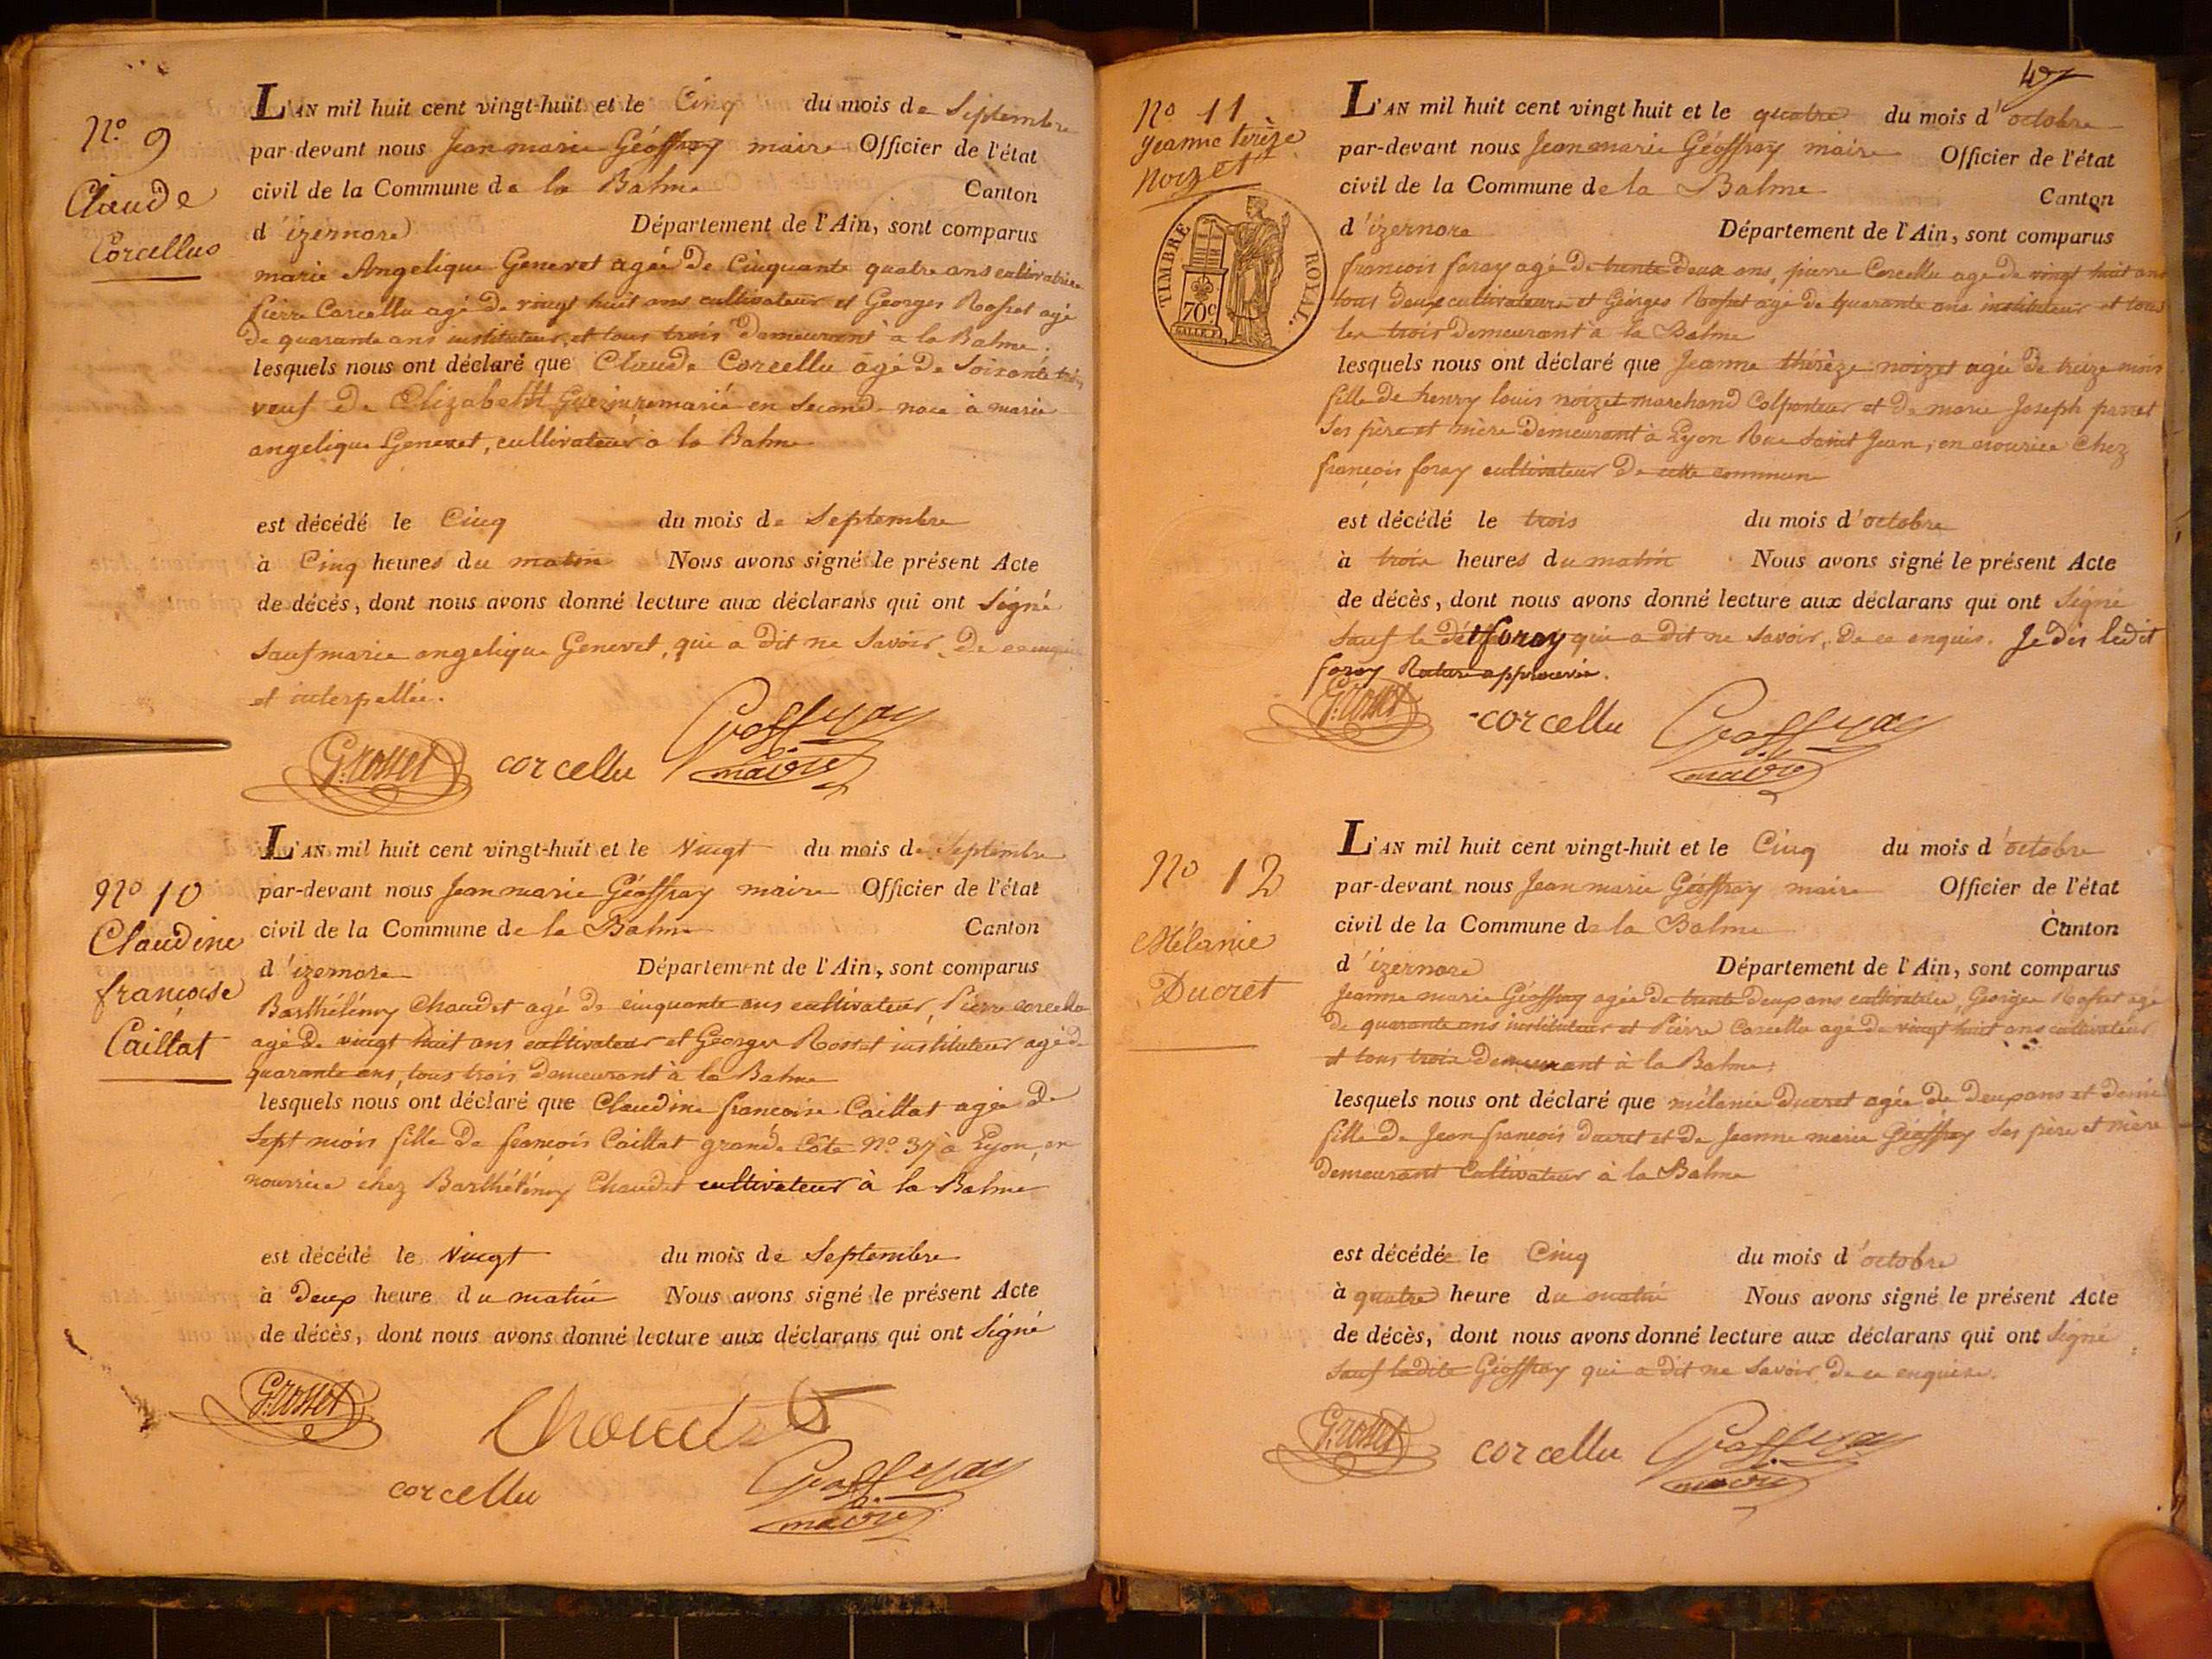 N.o 9
Claude
Corcellus
L'AN mil huit cent vingt-huit et le Cinq du mois de Septembre
par-devant nous Jean marie Géoffray maire Officier de l'état
civil de la Commune de la Balme Canton
d'izernore Département de l'Ain, sont comparus
marie Angelique Genevet agée De Cinquante quatre ans cultivatrice
Pierre Corcellu agé De vingt huit ans cultivateur et Georges Rosset agé
De quarante ans instituteur, et tous trois Demeurant à la Balme.
lesquels nous ont déclaré que Claude Corcellu agé De Soixante
veuf De Elizabeth remarié en Second noce à marie
angelique Genevet, cultivateur à la Balme
est décédé le Cinq du mois de Septembre
à Cinq heures du matin Nous avons signé le présent Acte
de décés, dont nous avons donné lecture aux déclarans qui ont Signé
Sauf marie angelique Genevet, qui a Dit ne Savoir, De ce
et interpellée.
G. rosset corcellu Geoffray
maire
N.o 10
Claudine
françoise
Caillat
L'AN mil huit cent vingt-huit et le Vingt du mois de Septembre
par-devant nous Jean marie Géoffray maire Officier de l'état
civil de la Commune de la Balme Canton
d'izernore Département de l'Ain, sont comparus
Barthélémy Chaudet agé De cinquante ans cultivateur, Pierre corcellu
agé De vingt huit ans cultivateur et Georges Rosset instituteur agé De
quarante ans, tous trois Demeurant à la Balme
lesquels nous ont déclaré que Claudine francoise Caillat agée De
Sept mois fille De francois Caillat grande Côte N.o 37 à Lyon, en
nourrice chez Barthélémy Chaudet cultivateur à la Balme
est décédé le Vingt du mois de Septembre
à Deux heure du matin Nous avons signé le présent Acte
de décès, dont nous avons donné lecture aux déclarans qui ont Signé
G. rosset Chaudet
corcellu Geoffray
maire
No 11
Jeanne terèze
noizet
TIMBRE ROYAL.
70c
L'AN mil huit cent vingt huit et le quatre du mois d'octobre
par-devant nous Jean marie Géoffray maire Officier de l'état
civil de la Commune de la Balme Canton
d'izernore Département de l'Ain, sont comparus
francois foray agé De trente Deux ans, pierre Corcellu agé De vingt huit ans
tous Deux cultivateurs et Géorges Rosset agé De quarante ans instituteur et tous
les trois Demeurant à la Balme
lesquels nous ont déclaré que Jeanne thérèze noizet agée De treize mois
fille De henry louis noizet marchand Colporteur et De marie Joseph
Ses père et mère Demeurant à Lyon Rue Saint Jean, en nourice Chez
françois foray cultivateur De cette commune
est décédé le trois du mois d'octobre
à trois heures du matin Nous avons signé le présent Acte
de décès, dont nous avons donné lecture aux déclarans qui ont Signé
Sauf le dit foray qui a Dit ne Savoir, De ce enquis. Je dis ledit
foray Rature approuvée.
G. rosset corcellu Geoffray
maire
No 12
Mélanie
Ducret
L'AN mil huit cent vingt-huit et le Cinq du mois d'octobre
par-devant nous Jean marie Géoffray maire Officier de l'état
civil de la Commune de la Balme Canton
d'izernore Département de l'Ain, sont comparus
Jeanne marie Géoffray agée De trente Deux ans cultivatrice, Georges Rosset agé
De quarante ans instituteur et Pierre Corcellu agé De vingt huit ans cultivateur
et tous trois Demeurant à la Balme,
lesquels nous ont déclaré que mélanie Ducret agée De Deux ans et Demie
fille De Jean francois Ducret et De Jeanne marie Géoffray Ses père et mère
Demeurant Cultivateur à la Balme
est décédée le Cinq du mois d'octobre
à quatre heure du matin Nous avons signé le présent Acte
de décès, dont nous avons donné lecture aux déclarans qui ont Signé
Sauf ladite Géoffray qui a Dit ne Savoir De ce enquise.
G. rosset corcellu Geoffray
maire